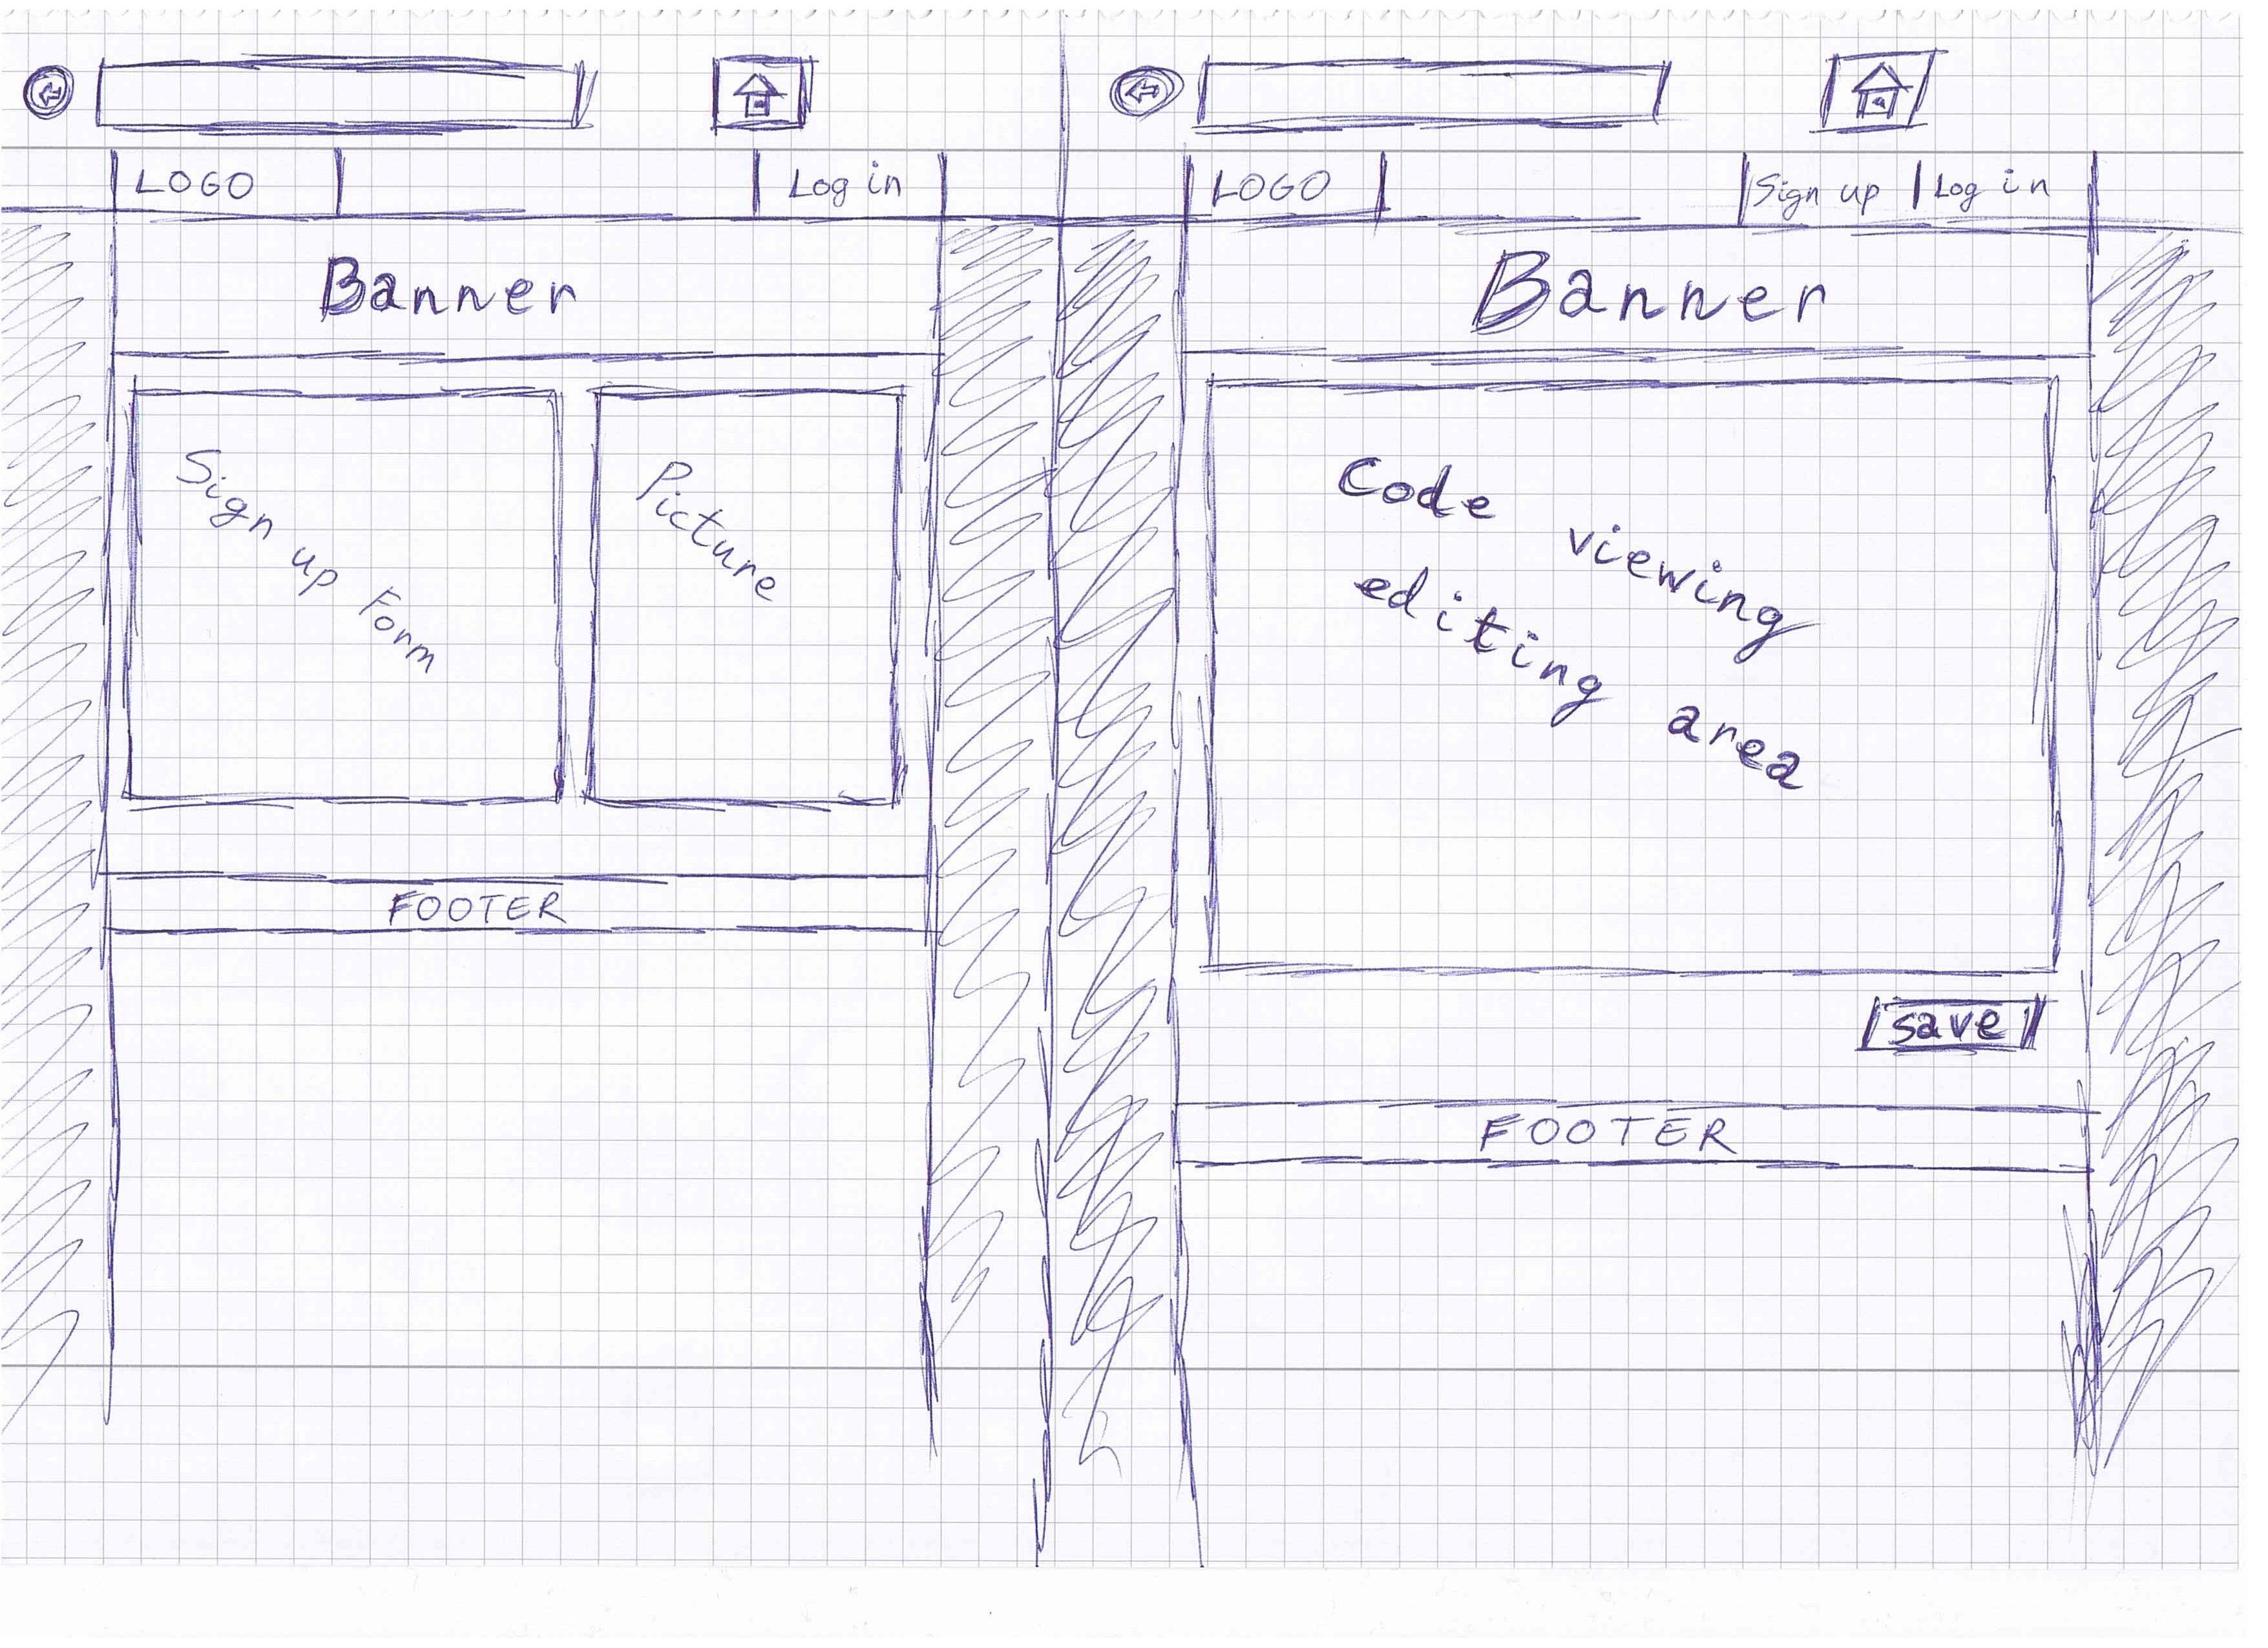 LOGO
Log in
Banner
Sign up Form
Picture
FOOTER
LOGO
Sign up
Log in
Banner
Code viewing
editing area
save
FOOTER